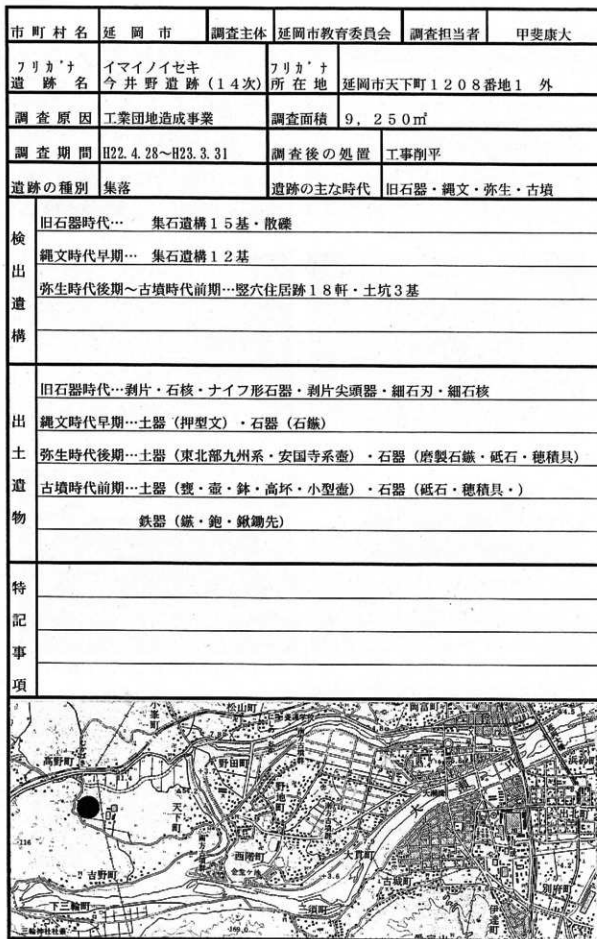 市町村名 延岡市 調査主体 延岡市教育委員会 調査担当者 甲斐康大
フリガナ イマイノイセキ フリガナ
遺跡名 今井野遺跡(14次) 所在地 延岡市天下町1208番地1 外
調査原因 工業団地造成事業 調査面積 9,250㎡
調査期間 H22.4.28~H23.3.31 調査後の処置 工事削平
遺跡の種別 集落 遺跡の主な時代 旧石器・縄文・弥生・古墳
検出遺構
旧石器時代… 集石遺構15基・散礫
縄文時代早期… 集石遺構12基
弥生時代後期~古墳時代前期…竪穴住居跡18軒・土坑3基
出土遺物
旧石器時代…剥片・石核・ナイフ形石器・剥片尖頭器・細石刃・細石核
縄文時代早期…土器(押型文)・石器(石鏃)
弥生時代後期…土器(東北部九州系・安国寺系壺)・石器(磨製石鏃・砥石・穂積具)
古墳時代前期…土器(甕・壺・鉢・高坏・小型壺)・石器(砥石・穂積具・)
鉄器(鏃・鉇・鍬鋤先)
特記事項
松山町
小峯町
高野町
野田町
野地町
天下町
西階町
大貫町
吉野町
古城町
下三輪町
須町
別府町
伊達町
三輪神社